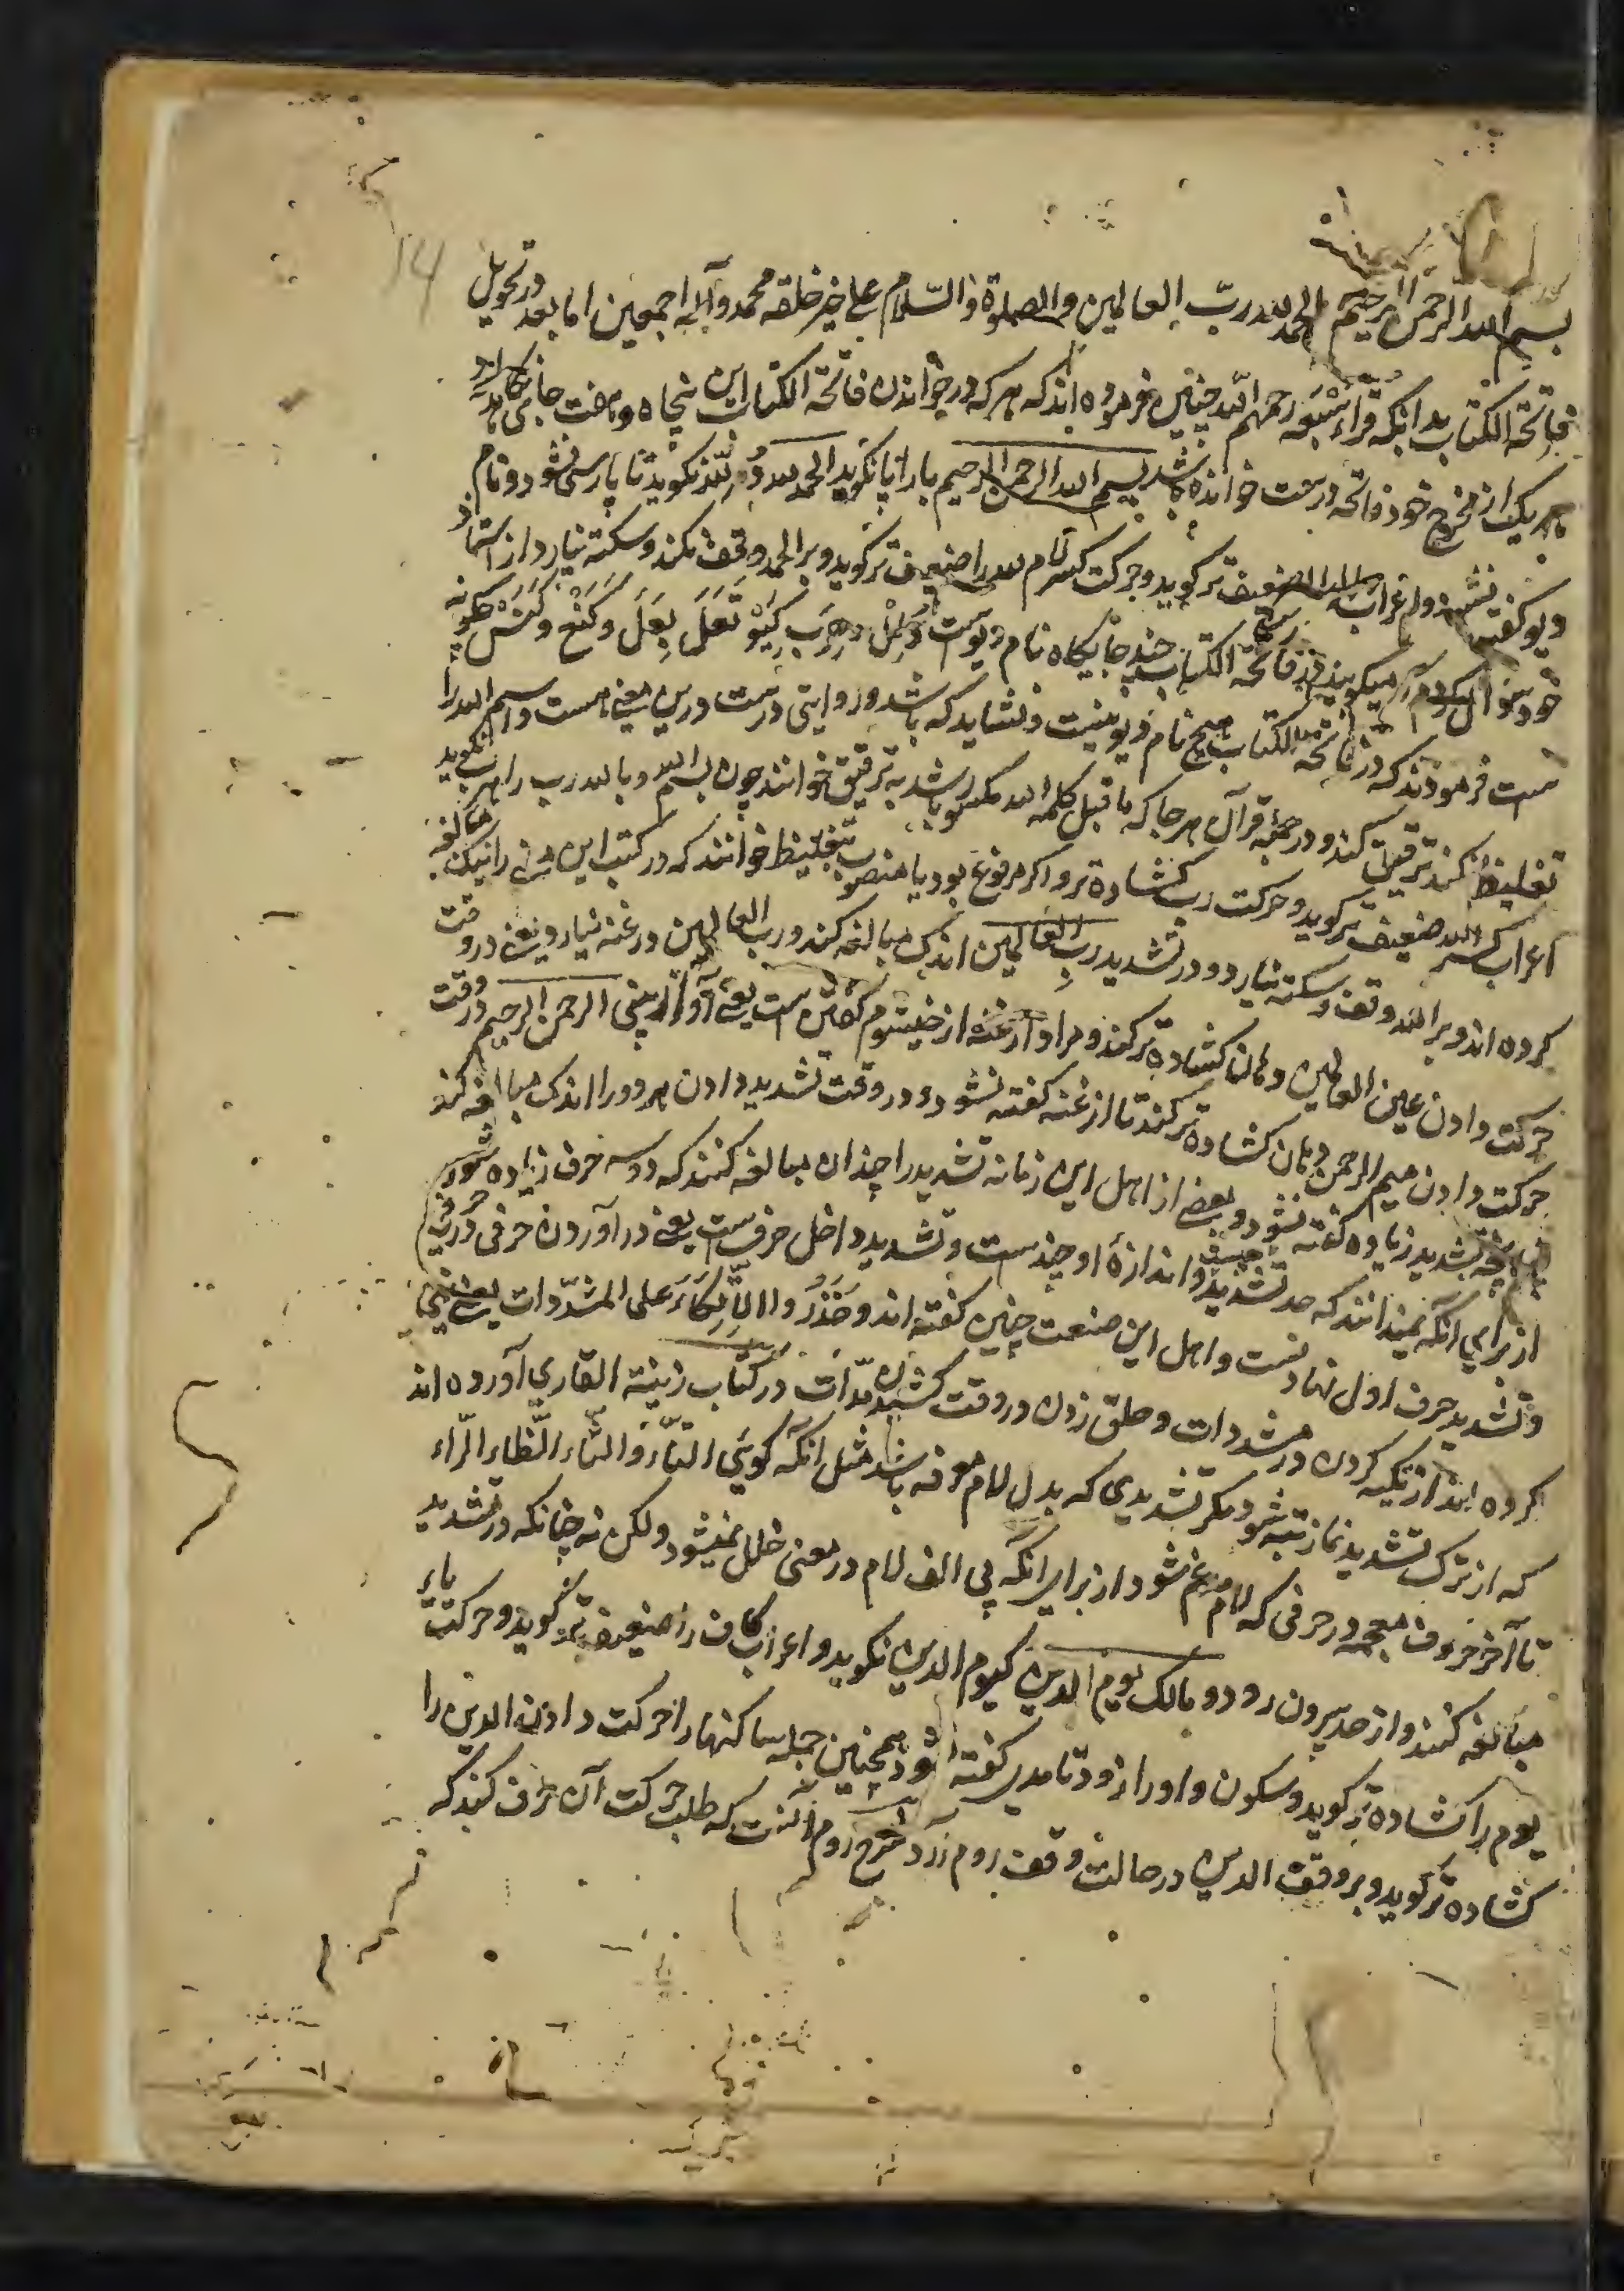 14
بسم الله الرحمن الرحیم الحمد لله رب العالمین والصلوة والسلام علی خیر خلقه محمد وآله اجمعین اما بعد در تجوید
فاتحة الکتاب بدانکه قراء سبعه رحمهم الله چنین فرموده اند که هر که در خواندن فاتحة الکتاب این پنجاه وهفت جای نکاه دارد
هر یک از مخرج خود فاتحه درست خوانده باشد بسم الله الرحمن الرحیم بارا پا نکوید الحمد لله نکوید تا پارسی نشود ونام
دیو کفته نشود واعراب ضعیف تر کوید وحرکت کسر لام لله را ضعیف تر کوید وبر الحمد وقف نکند وسکته نیارد از استاد
خود سوال کردم که میکویند در فاتحة الکتاب چند جایکاه نام دیوست دلل وهرب کیو تعل بعل وکنع وکنس چکونه
است فرمودند که در فاتحة الکتاب هیچ نام دیو نیست ونشاید که باشد وروایتی درست درین معنی هست واسم الله را
تغلیظ نکند ترقیق کند ودر جمله قرآن هر جا که ما قبل کلمه الله مکسور باشد به ترقیق خوانند چون بسم الله وبالله رب را نکوید
اعراب کسر الله ضعیف تر کوید وحرکت رب کشاده تر واکر مرفوع بود یا منصوب بتغلیظ خوانند که در کتب این فن را نیک مبالغه
کرده اند وبر الله وقف وسکته نیارد ودر تشدید رب العالمین اندک مبالغه کند ورب العالمین در غنه نیارد یعنی در وقت
حرکت دادن عین العالمین دهان کشاده تر کند ومراد از غنه از خیشوم کفتن است یعنی آواز بینی الرحمن الرحیم در وقت
حرکت دادن میم الرحمن دهان کشاده تر کند تا از غنه کفته نشود ودر وقت تشدید دادن هر دو را اندک مبالغه کند
تشدید زیاده کفته نشود وبعضی از اهل این زمانه تشدید را چندان مبالغه کنند که دو سه حرف زیاده شود
از برای آنکه نمیدانند که حد تشدید چیست واندازهٔ او چندست وتشدید داخل حرف است یعنی در آوردن حرفی در حرفی
وتشدید حرف اول نهادنست واهل این صنعت چنین کفته اند وحذروا الاتکاء علی المشددات یعنی نهی
کرده اند از تکیه کردن در مشددات وحلق زدن در وقت کشیدن مدات در کتاب زینة القاری آورده اند
که از ترک تشدید نماز تبه شود مکر تشدیدی که بدل لام معرفه باشد مثل آنکه کویی التاء والثاء الظاء الراء
تا آخر حروف معجمه در حرفی که لام مدغم شود از برای آنکه بی الف لام در معنی خلل نمیشود ولکن نه چنانکه در تشدید
مبالغه کنند واز حد بیرون رود ومالک یوم الدین کیوم الدین نکوید واعراب کاف را ضعیف تر کوید وحرکت یاء
یوم را کشاده تر کوید وسکون واو را زود تا مدی کفته نشود همچنین جمله ساکنها را حرکت دادن الدین را
کشاده تر کوید وبر وقف الدین در حالت وقف روم آرد شرح روم آنست که طلب حرکت آن حرف کند که